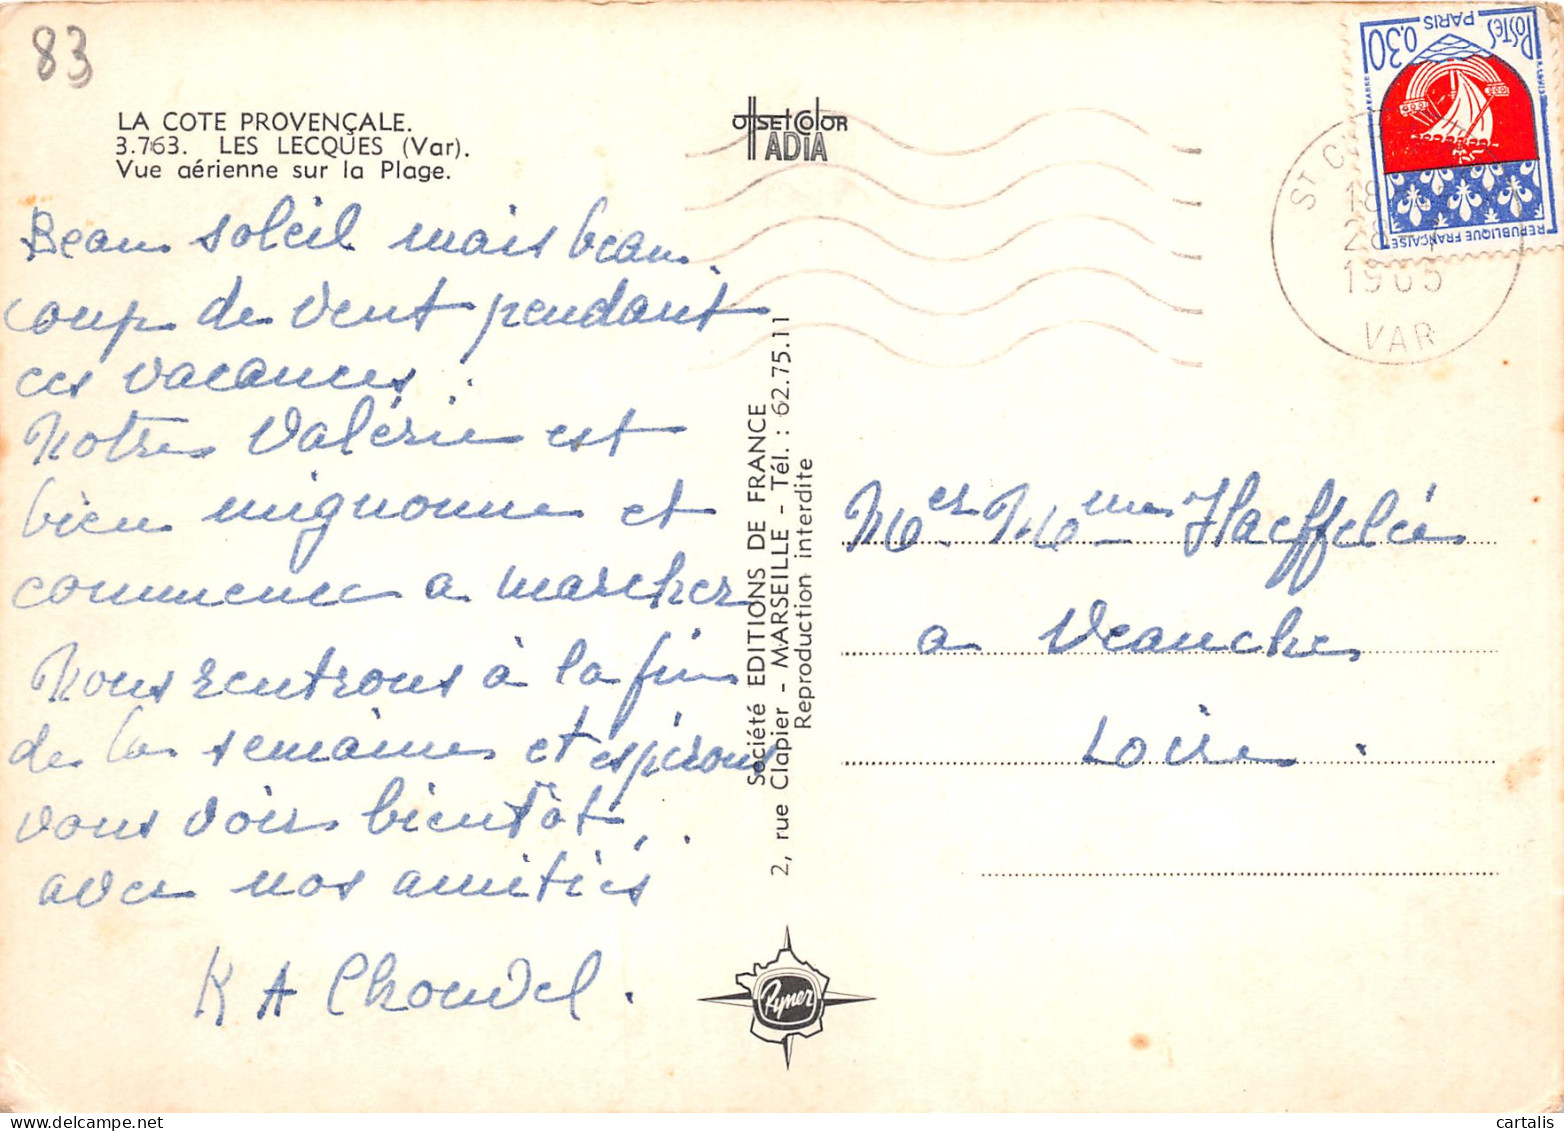 83
LA COTE PROVENÇALE.
3.763. LES LECQUES (Var).
Vue aérienne sur la Plage.
Beau soleil mais beau
coup de vent pendant
ces vacances.
Notre Valérie est
bien mignonne et
commence a marcher
Nous rentrons à la fin
de la semaine et espérons
vous voir bientôt.
avec nos amitiés
K A Chouvel.
OFFSET COLOR
ADIA
Société EDITIONS DE FRANCE
2, rue Clapier - MARSEILLE - Tél. : 62.75.11
Reproduction interdite
Rymer
POSTES PARIS 0,30
REPUBLIQUE FRANÇAISE
ST
18
28-7
1965
VAR
Mr et Mme Haeffelé
a Veauche
Loire.
cartalis